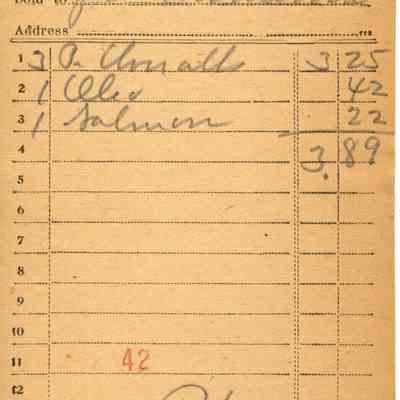 Sold to
Address
1 3 P. 3 25
2 1 Oleo 42
3 1 Salmon 22
4 3.89
5
6
7
8
9
10
11 42
12